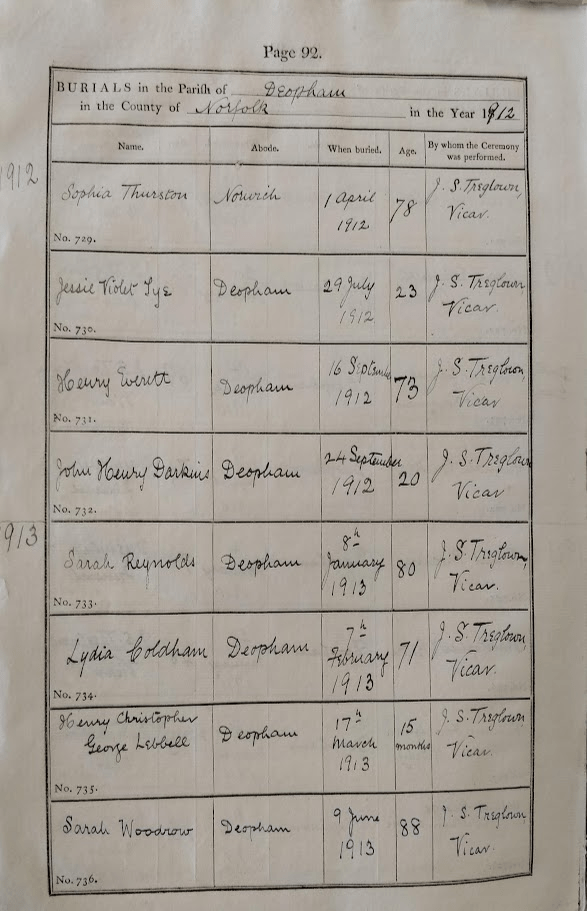 Page 92.
BURIALS in the Parish of Deopham
in the County of Norfolk in the Year 1912
Name. Abode. When buried. Age. By whom the Ceremony was performed.
1912
Sophia Thurston Norwich 1 April 1912 78 J. S. Treglown, Vicar.
No. 729.
Jessie Violet Tye Deopham 29 July 1912 23 J. S. Treglown Vicar
No. 730.
Henry Everett Deopham 16 September 1912 73 J. S. Treglown, Vicar
No. 731.
John Henry Darkins Deopham 24 September 1912 20 J. S. Treglown Vicar
No. 732.
1913
Sarah Reynolds Deopham 8th January 1913 80 J. S. Treglown, Vicar.
No. 733.
Lydia Coldham Deopham 7th February 1913 71 J. S. Treglown, Vicar.
No. 734.
Henry Christopher George Lebbell Deopham 17th March 1913 15 months J. S. Treglown Vicar.
No. 735.
Sarah Woodrow Deopham 9 June 1913 88 J. S. Treglown Vicar
No. 736.